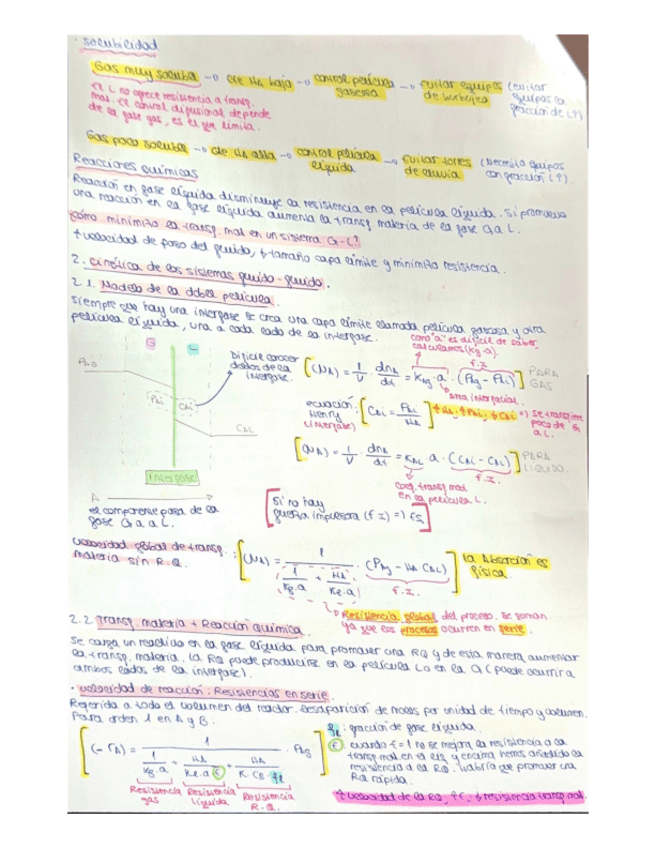 · Solubilidad
Gas muy soluble → cte HA bajo → control película gaseosa → Evitar equipos de burbujeo (evitar equipos con fracción de L↑)
El L no ofrece resistencia a transf.
mat. El control difusional depende
de la fase gas, es el que limita.
Gas poco soluble → cte HA alta → control película líquida → Evitar torres de lluvia (Necesito equipos con fracción L↑).
Reacciones químicas
Reacción en fase líquida disminuye la resistencia en la película líquida. Si promuevo
una reacción en la fase líquida aumenta la transf materia de la fase G a L.
¿Cómo minimizo la transf. mat en un sistema G-L?
↑ velocidad de paso del fluido, ↓ tamaño capa límite y minimizo resistencia.
2. Cinética de los sistemas fluido-fluido.
2.1. Modelo de la doble película.
Siempre que hay una interfase se crea una capa límite llamada película gaseosa y otra
película líquida, una a cada lado de la interfase.
G L
PAG
PAi CAi
CAL
Interfase
A →
el componente pasa de la
fase G a a L.
Difícil conocer
datos de la
interfase.
como "a" es difícil de saber,
calculamos (kg·a).
(NA) = 1/V · dnA/dt = kAg · a · (PAg - PAi) PARA GAS
f.z
área interfacial.
ecuación Henry (interfase) : CAi = PAi/HA ↑HA, ↑PAi, ↓CAi => Se transfiere poco de G a L.
(NA) = 1/V · dnA/dt = kAL · a · (CAi - CAL) PARA LÍQUIDO.
f.z.
coef. transf mat
en la película L.
Si no hay
fuerza impulsora (f z) =>
Velocidad global de transf.
materia sin R.Q. : (NA) = 1 / (1/kg·a + HA/kl·a) · (PAg - HA CAL) La Absorción es física
f.z.
→ Resistencia global del proceso. Se suman
ya que los procesos ocurren en serie.
2.2 Transf. materia + Reacción química.
Se carga un reactivo en la fase líquida para promover una RQ y de esta manera aumentar
la transf. materia. La RQ puede producirse en la película L o en la G (puede ocurrir a
ambos lados de la interfase).
· Velocidad de reacción: Resistencias en serie.
Referida a todo el volumen del reactor. Desaparición de moles por unidad de tiempo y volumen.
Para orden 1 en A y B:
(-rA) = 1 / (1/kg·a + HA/kl·a E + HA/k CB fl) · PAg
Resistencia gas Resistencia líquida Resistencia R.Q.
fl: fracción de fase líquida.
E: cuando E=1 no se mejora la resistencia a la
transf. mat en el líq y encima hemos añadido la
resistencia a la RQ. Habría que promover una
RQ rápida.
↑ velocidad de la RQ, ↑E, ↓ resistencia transf mat.